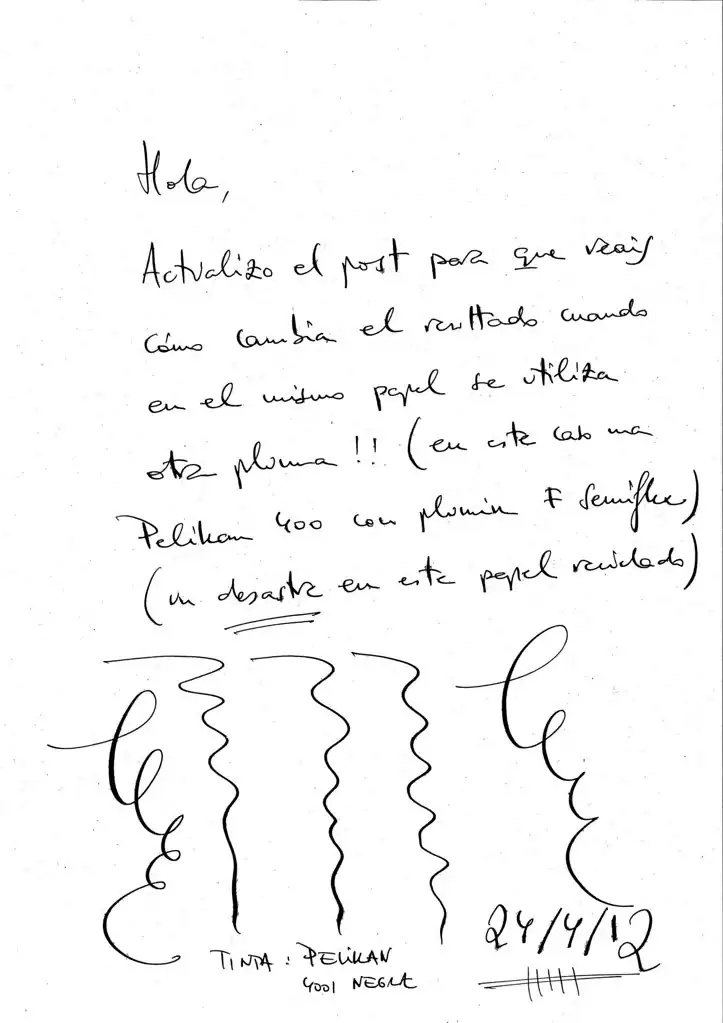 Hola,
Actualizo el post para que veáis
cómo cambia el resultado cuando
en el mismo papel se utiliza
otra pluma!! (en este caso una
Pelikan 400 con plumin F semiflex)
(un desastre en este papel reciclado)
TINTA: PELIKAN
4001 NEGRA
24/4/12